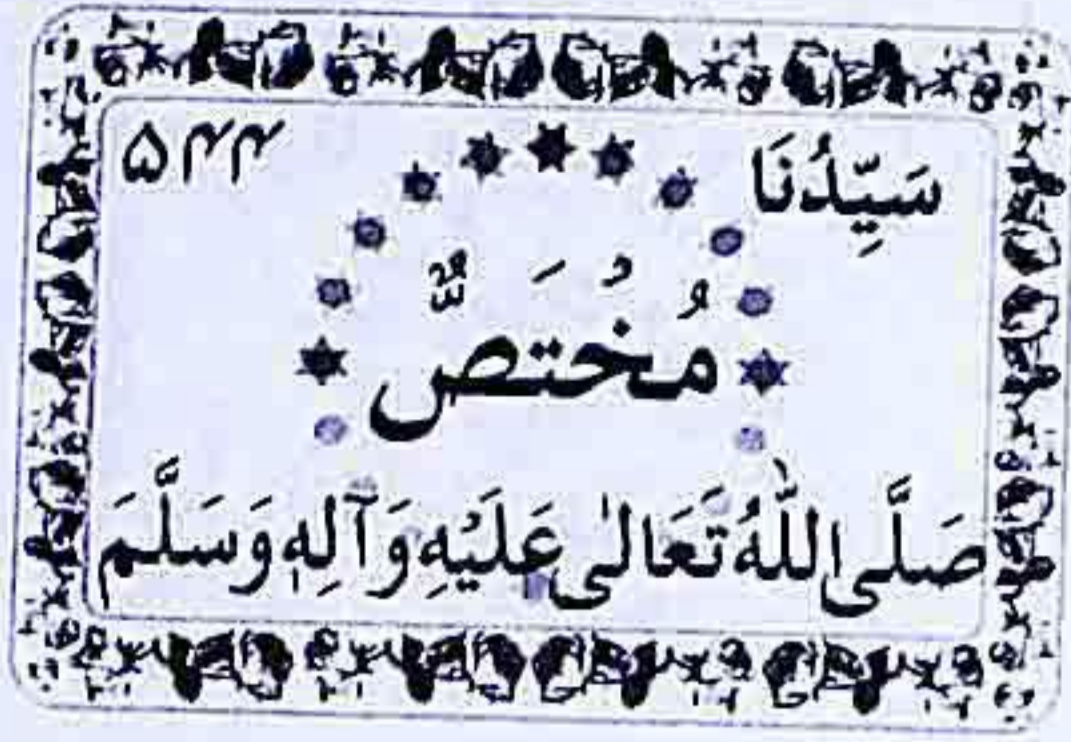 سَيِّدُنَا ۵۴۴
مُخُتَصٌّ
صَلَّى اللّٰهُ تَعَالٰى عَلَيُهِ وَآلِهٖ وَسَلَّمَ